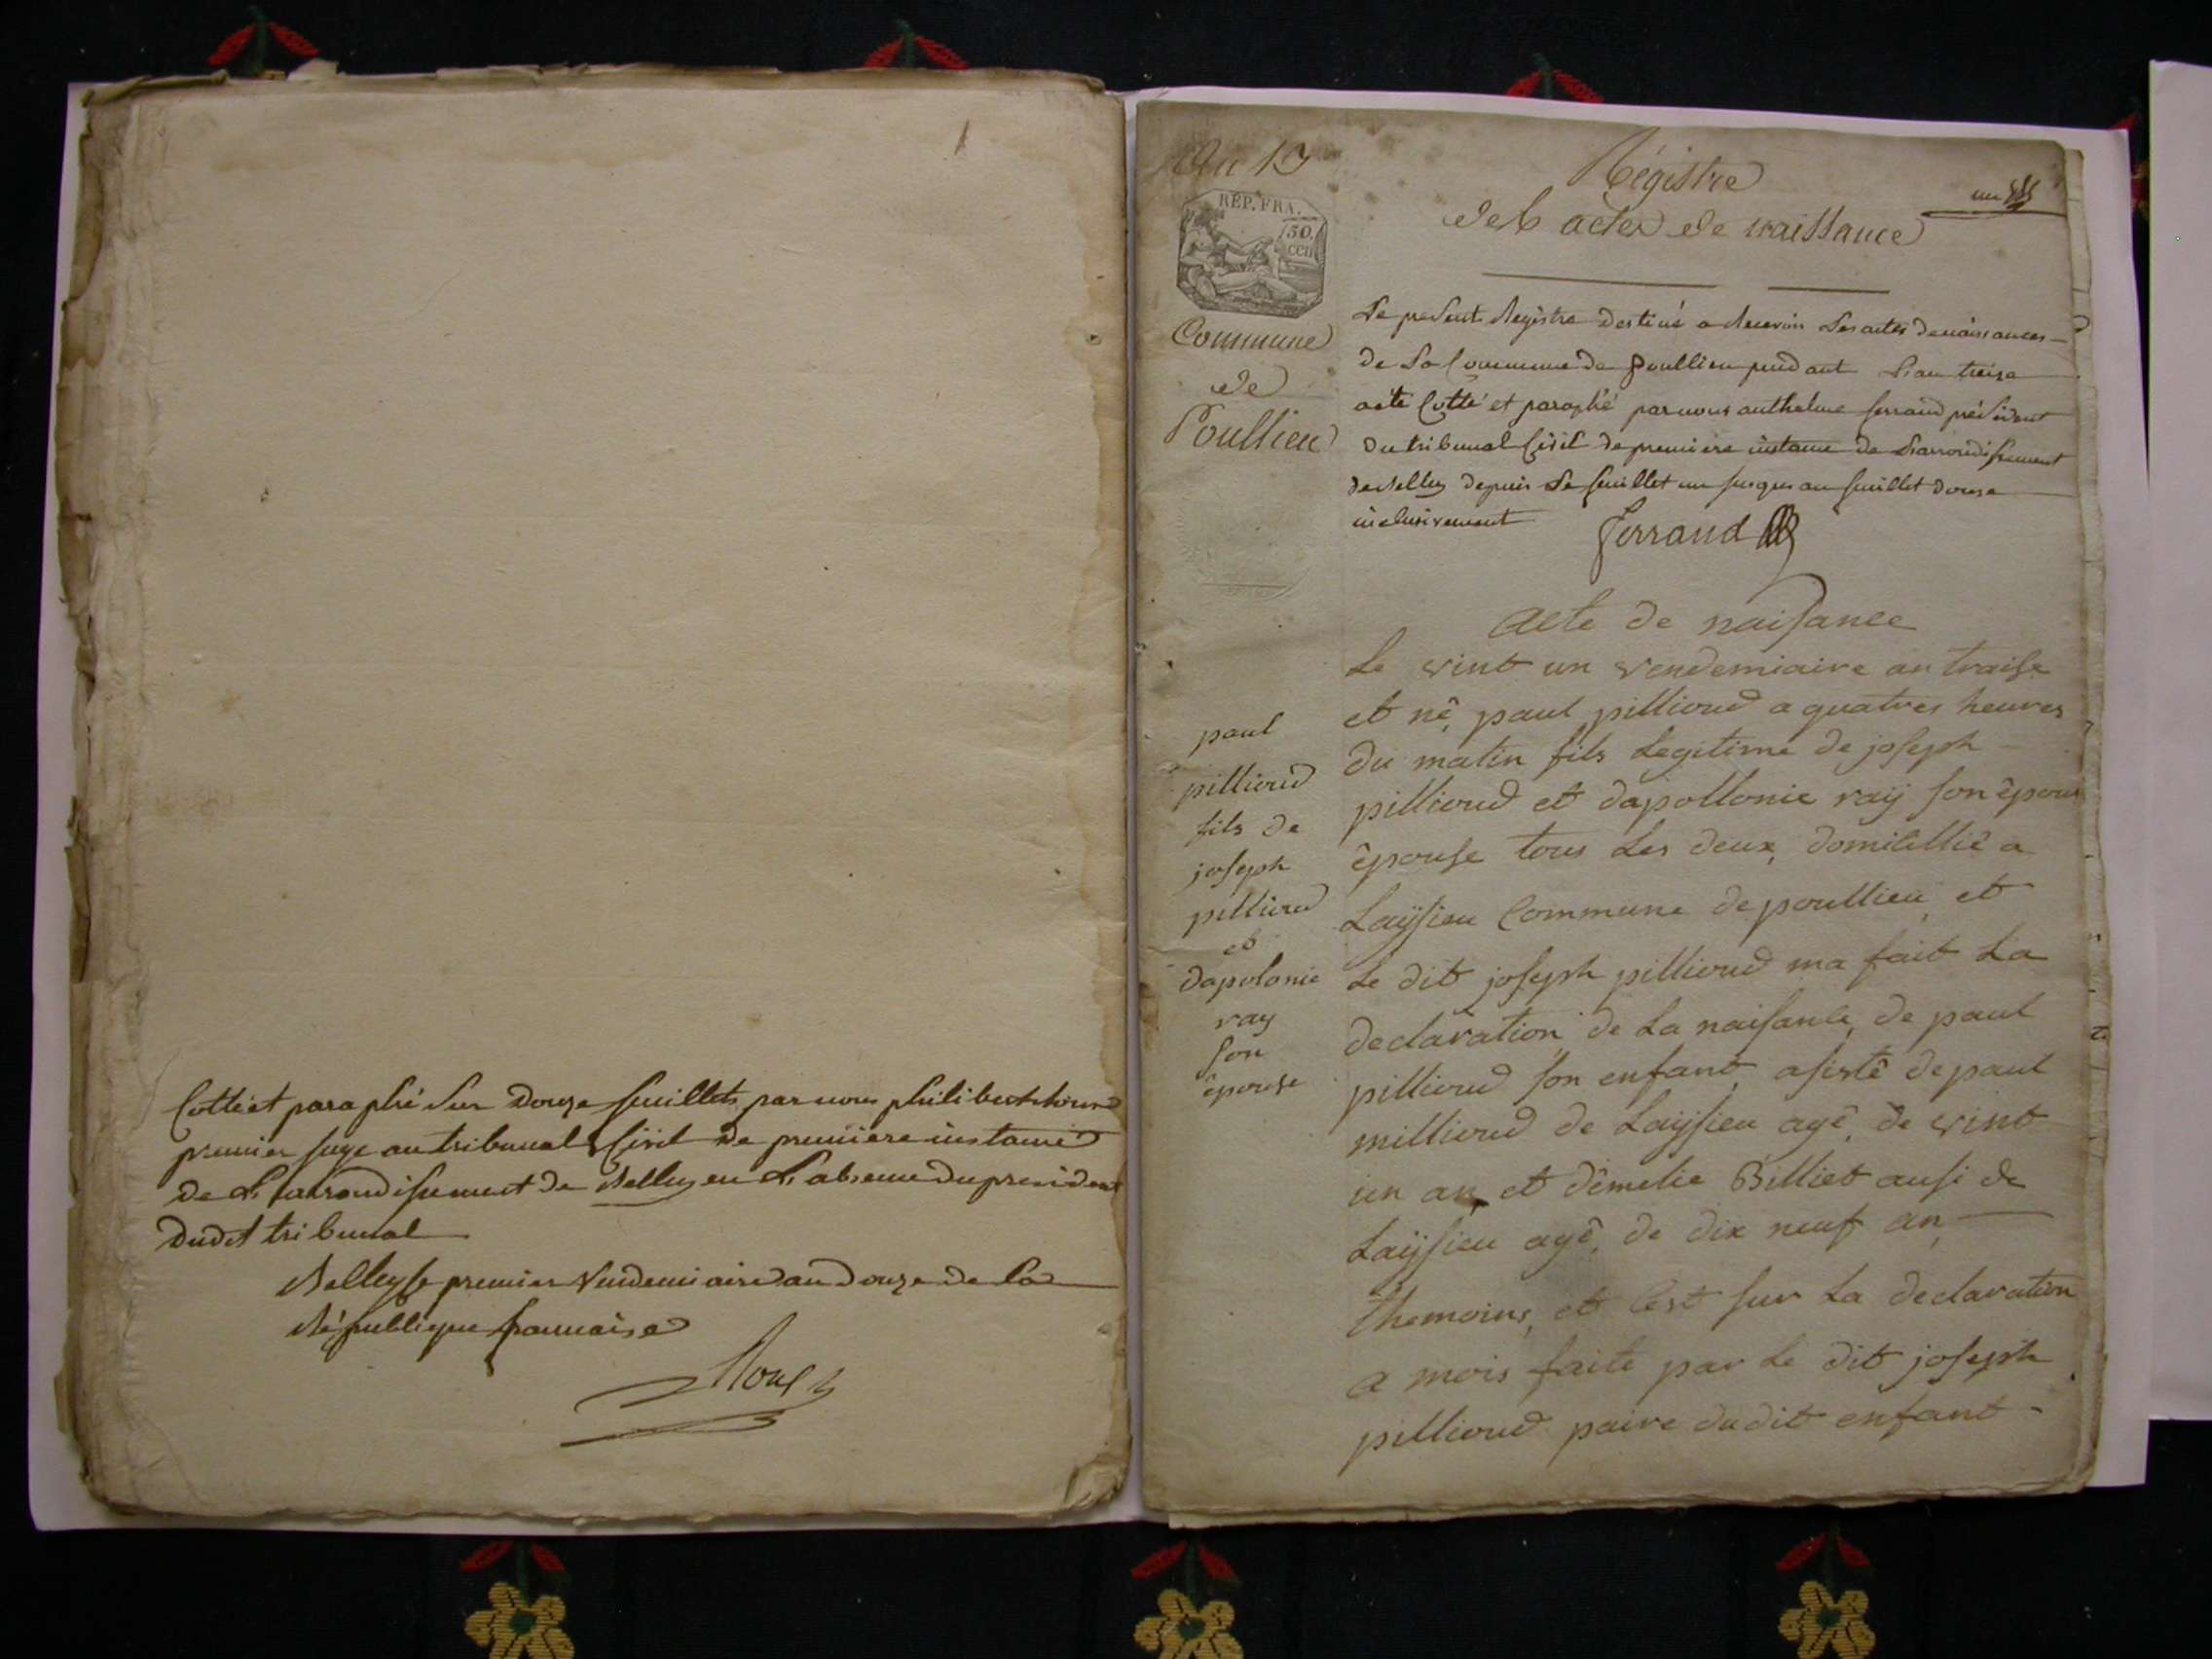 Cotté et paraphé sur douze feuillets par nous philibert
premier juge au tribunal Civil de premiere instance
de L'arrondissement de Belley en L'absence du president
dudit tribunal
Belley le premier Vendemiaire an douze de la
République francaise
An 13
REP. FRA.
50
cen
Commune
de
Poullieu
Régistre
des actes de naissance
un
Le present Registre destiné a Recevoir Les actes de naissances
de La Commune de poullieu pendant L'an treize
acté Cotté et paraphé par nous anthelme ferrand président
du tribunal Civil de premiere instance de L'arrondissement
de Belley depuis Le feuillet un jusques au feuillet douze
inclusivement
ferrand
acte de naisance
Le vint un vendemiaire an traise
et nê paul pillioud a quatres heures
du matin fils Legitime de joseph
pillioud et dapollonie raÿ son êpous
êpouse tous Les deux domicillié a
Laÿsieu Commune de poullieu et
Le dit joseph pillioud ma fait La
declaration de La naisance de paul
pillioud son enfant asistê de paul
millioud de Laÿsieu agê de vint
un an et dêmelie Billiet ausi de
Laÿsieu agê de dix neuf an
themoins et Cest sur La declaration
a mois faite par Le dit joseph
pillioud paire dudit enfant
paul
pillioud
fils de
joseph
pillioud
et
dapolonie
ray
son
êpouse